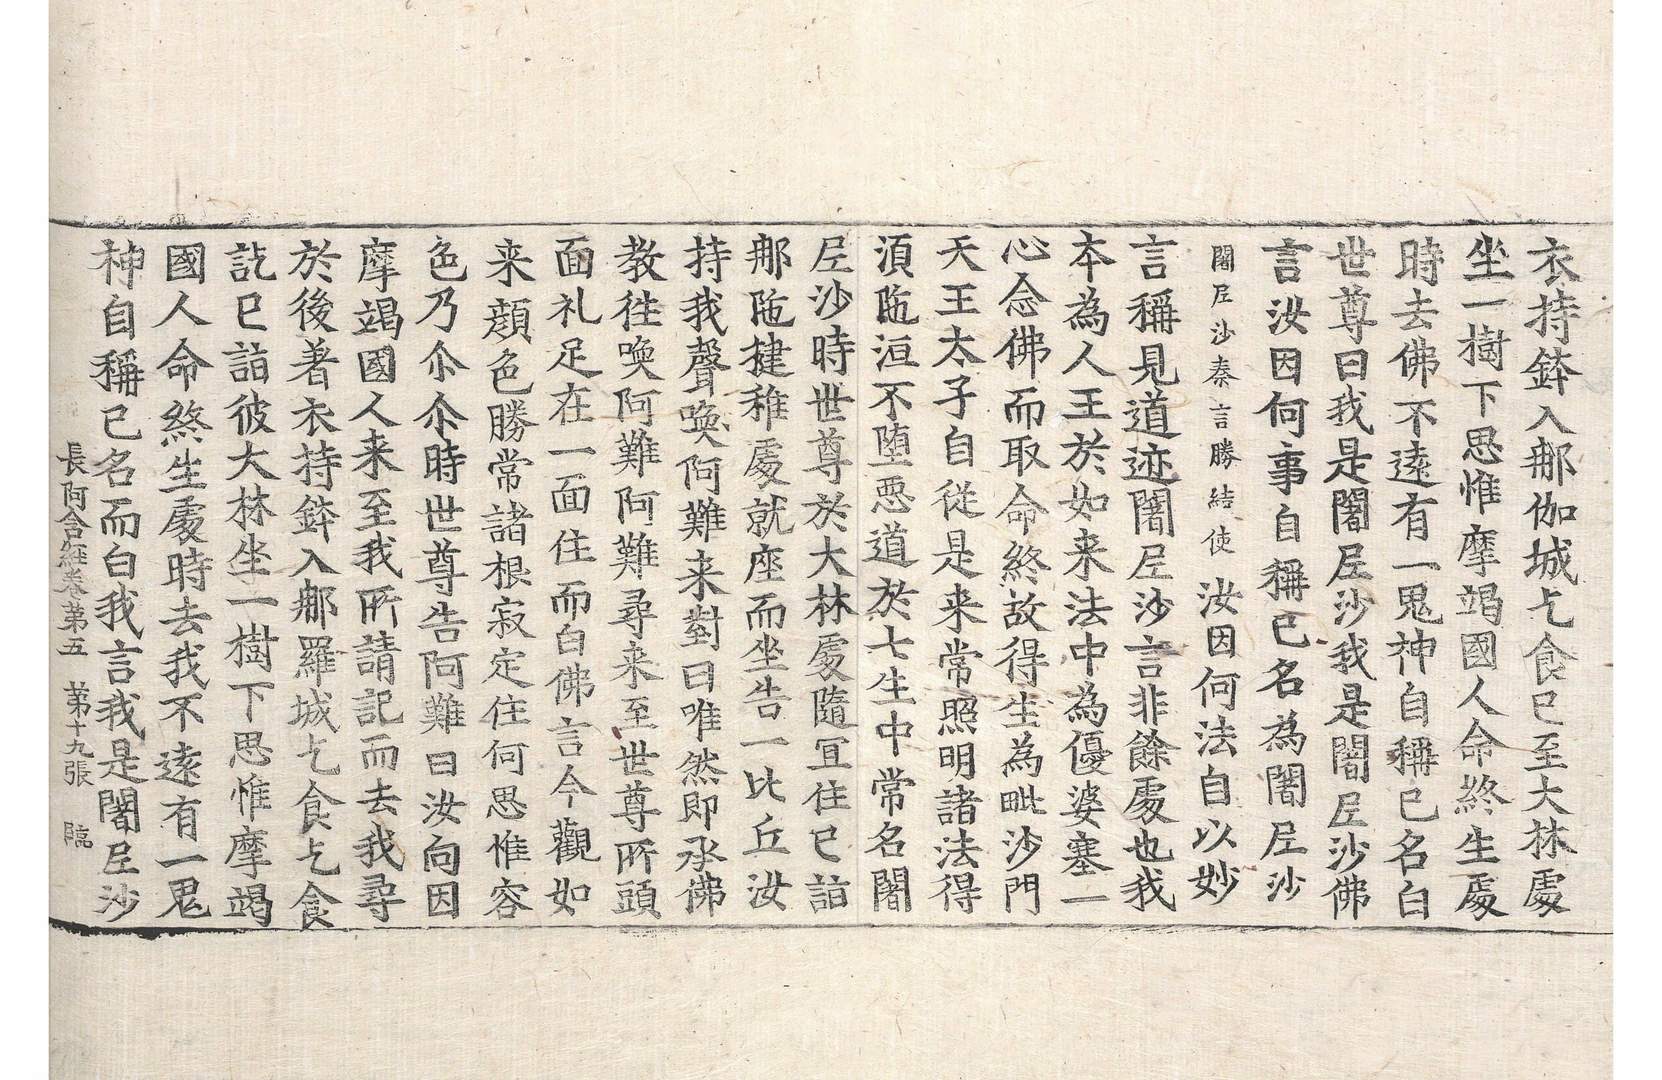 衣持鉢入那伽城乞食已至大林處
坐一樹下思惟摩竭國人命終生處
時去佛不遠有一鬼神自稱已名白
世尊曰我是闍尼沙我是闍尼沙佛
言汝因何事自稱已名為闍尼沙
闍尼沙秦言勝結使 汝因何法自以妙
言稱見道迹闍尼沙言非餘處也我
本為人王於如来法中為優婆塞一
心念佛而取命終故得生為毗沙門
天王太子自從是来常照明諸法得
湏陁洹不墮惡道於七生中常名闍
尼沙時世尊於大林處隨冝住已詣
那陁揵稚處就座而坐告一比丘汝
持我聲喚阿難来對曰唯然即承佛
教往喚阿難阿難尋来至世尊所頭
面礼足在一面住而白佛言今觀如
来顔色勝常諸根寂定住何思惟容
色乃尒尒時世尊告阿難曰汝向因
摩竭國人来至我所請記而去我尋
於後著衣持鉢入那羅城乞食乞食
訖已詣彼大林坐一樹下思惟摩竭
國人命終生處時去我不遠有一鬼
神自稱已名而白我言我是闍尼沙
長阿含經卷第五 第十九張 臨